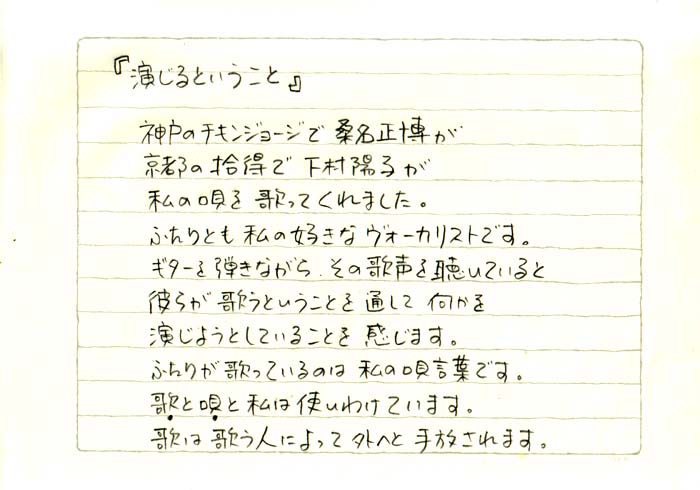 『演じるということ』
神戸のチキンジョージで 桑名正博が
京都の拾得で 下村陽るが
私の唄を 歌ってくれました。
ふたりとも 私の好きな ヴォーカリストです。
ギターを弾きながら、その歌声を聴いていると
彼らが 歌うということを 通して 何かを
演じようとしていることを 感じます。
ふたりが 歌っているのは 私の唄言葉です。
歌と唄と 私は 使いわけています。
歌は 歌う人によって 外へと 手放されます。